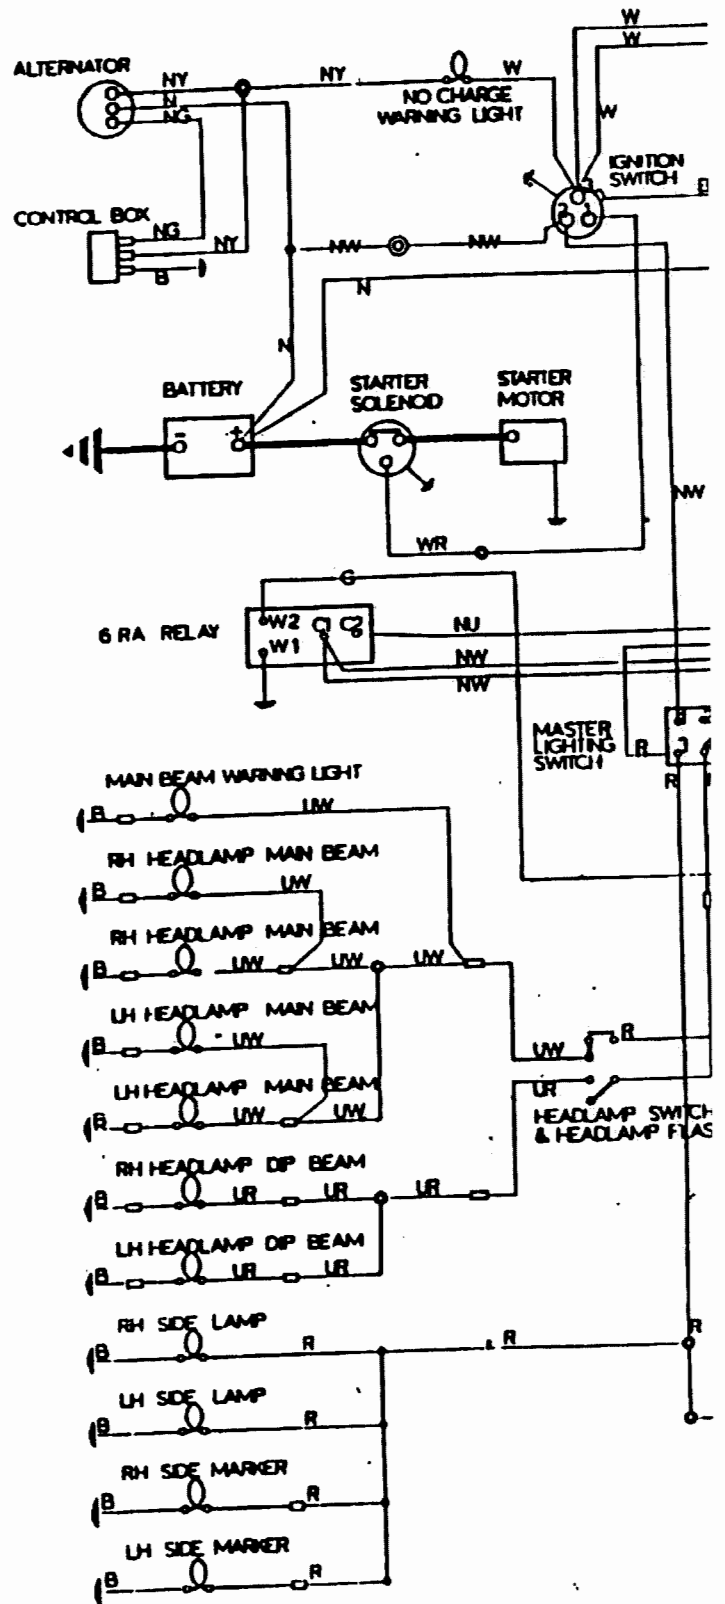 W
W
ALTERNATOR
NY
NY
W
N
NO CHARGE
WARNING LIGHT
NG
W
IGNITION
SWITCH
3
2
1
CONTROL BOX
NG
NY
NW
NW
B
N
N
BATTERY
STARTER
SOLENOID
STARTER
MOTOR
-
+
NW
WR
G
6 RA RELAY
W2
C1
C2
NU
W1
NW
NW
MASTER
LIGHTING
SWITCH
R
R
MAIN BEAM WARNING LIGHT
B
UW
RH HEADLAMP MAIN BEAM
B
UW
RH HEADLAMP MAIN BEAM
B
UW
UW
UW
LH HEADLAMP MAIN BEAM
B
UW
R
UW
LH HEADLAMP MAIN BEAM
B
UW
UW
UR
HEADLAMP SWITCH
& HEADLAMP FLAS
RH HEADLAMP DIP BEAM
B
UR
UR
UR
LH HEADLAMP DIP BEAM
B
UR
UR
RH SIDE LAMP
B
R
R
R
LH SIDE LAMP
B
R
RH SIDE MARKER
B
R
LH SIDE MARKER
B
R